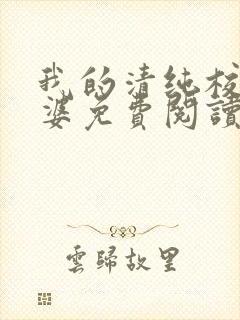 我的清純校
婆免費閱讀
雲歸故里